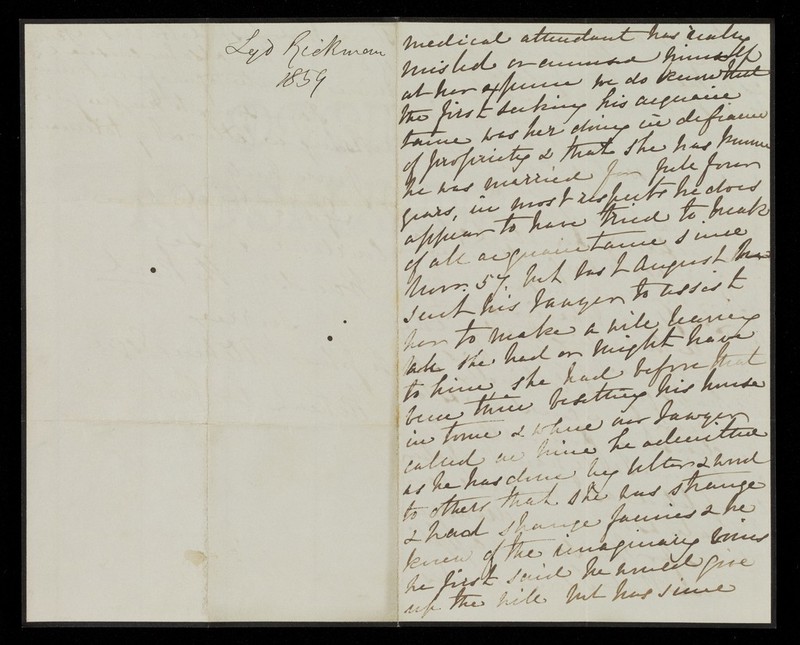 Lyd Rickman
1859
medical attendant has really
misled or amused himself
at her expense we do know that
the first seeking his acquain
tance was her doing in defiance
of propriety & that she has known
he was married for full four
years, in most respects he does
appear to have tried to break
of all acquaintance since
Novr. 57. but last August he
sent his lawyer to assist
her to make a will leaving
all she had or might have
to him she had before that
been three besetting his house
in town & when our lawyer
called on him he admitted
as he has done by letter & word
to others that she was strange
& had strange fancies & he
knew of the imaginary voices
he first said he would give
up the will but has since